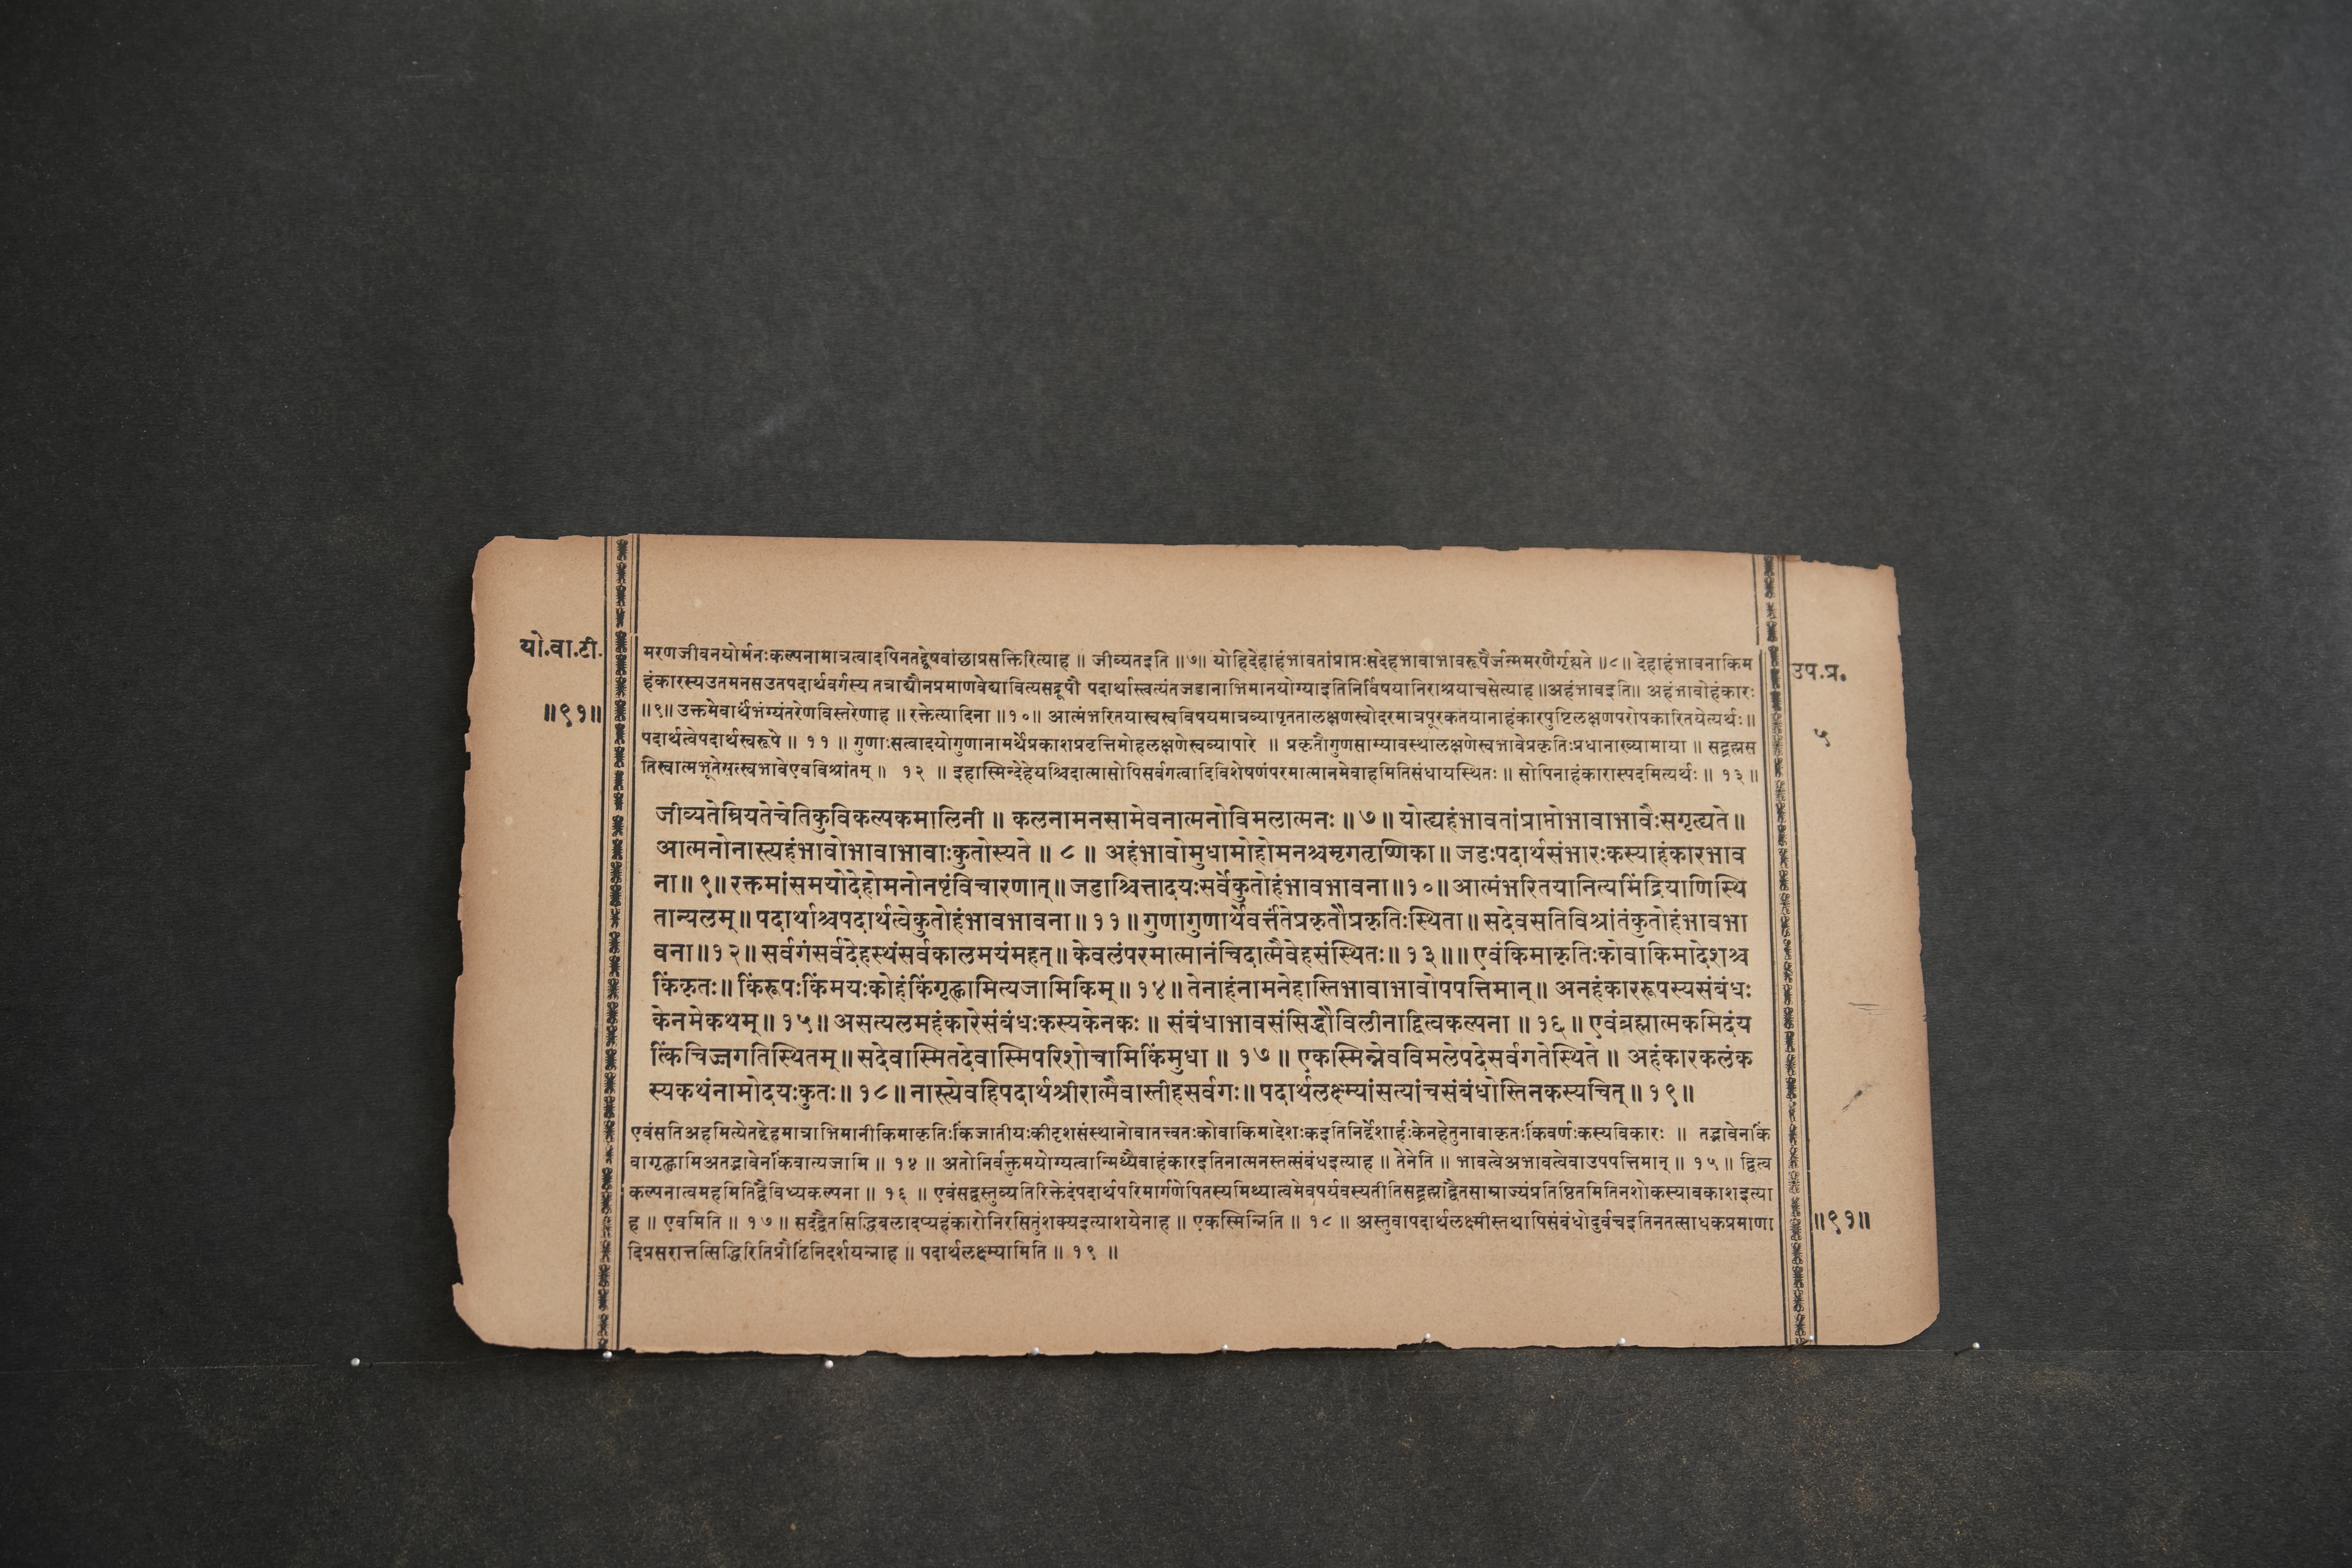 यो.वा.टी.
॥९१॥
मरणजीवनयोर्मनःकल्पनामात्रत्वादपिनतद्द्वेषवांछाप्रसक्तिरित्याह ॥ जीव्यतइति ॥७॥ योहिदेहाहंभावतांप्राप्तःसदेहभावाभावरूपैर्जन्ममरणैर्गृह्यते ॥८॥ देहाहंभावनाकिम
हंकारस्यउतमनसउतपदार्थवर्गस्य तत्राद्यौनप्रमाणवेद्यावित्यसद्रूपौ पदार्थास्त्वत्यंतजडानाभिमानयोग्याइतिनिर्विषयानिराश्रयाचसेत्याह ॥अहंभावइति॥ अहंभावोहंकारः
॥९॥ उक्तमेवार्थंभंग्यंतरेणविस्तरेणाह ॥ रक्तेत्यादिना ॥१०॥ आत्मंभरितयास्वस्वविषयमात्रव्यापृततालक्षणस्वोदरमात्रपूरकतयानाहंकारपुष्टिलक्षणपरोपकारितयेत्यर्थः॥
पदार्थत्वेपदार्थस्वरूपे ॥ ११ ॥ गुणाःसत्वादयोगुणानामर्थेप्रकाशप्रवृत्तिमोहलक्षणेस्वव्यापारे ॥ प्रकृतौगुणसाम्यावस्थालक्षणेस्वभावेप्रकृतिःप्रधानाख्यामाया ॥ सद्ब्रह्मस
तिस्वात्मभूतेसत्स्वभावेएवविश्रांतम् ॥ १२ ॥ इहास्मिन्देहेयश्चिदात्मासोपिसर्वगत्वादिविशेषणंपरमात्मानमेवाहमितिसंधायस्थितः ॥ सोपिनाहंकारास्पदमित्यर्थः ॥ १३ ॥
जीव्यतेम्रियतेचेतिकुविकल्पकमालिनी ॥ कलनामनसामेवनात्मनोविमलात्मनः ॥ ७ ॥ योत्द्यहंभावतांप्राप्तोभावाभावैःसगृत्द्यते ॥
आत्मनोनास्त्यहंभावोभावाभावाःकुतोस्यते ॥ ८ ॥ अहंभावोमुधामोहोमनश्चमृगतृष्णिका ॥ जडःपदार्थसंभारःकस्याहंकारभाव
ना ॥ ९ ॥ रक्तमांसमयोदेहोमनोनष्टंविचारणात् ॥ जडाश्चित्तादयःसर्वेकुतोहंभावभावना ॥१०॥ आत्मंभरितयानित्यमिंद्रियाणिस्थि
तान्यलम् ॥ पदार्थाश्चपदार्थत्वेकुतोहंभावभावना ॥ ११ ॥ गुणागुणार्थेवर्त्तंतेप्रकृतौप्रकृतिःस्थिता ॥ सदेवसतिविश्रांतंकुतोहंभावभा
वना ॥१२॥ सर्वगंसर्वदेहस्थंसर्वकालमयंमहत् ॥ केवलंपरमात्मानंचिदात्मैवेहसंस्थितः ॥ १३ ॥ ॥ एवंकिमाकृतिःकोवाकिमादेशश्च
किंकृतः ॥ किंरूपःकिंमयःकोहंकिंगृह्णामित्यजामिकिम् ॥ १४ ॥ तेनाहंनामनेहास्तिभावाभावोपपत्तिमान् ॥ अनहंकाररूपस्यसंबंधः
केनमेकथम् ॥ १५ ॥ असत्यलमहंकारेसंबंधःकस्यकेनकः ॥ संबंधाभावसंसिद्धौविलीनाद्वित्वकल्पना ॥ १६ ॥ एवंब्रह्मात्मकमिदंय
त्किंचिज्जगतिस्थितम् ॥ सदेवास्मितदेवास्मिपरिशोचामिकिंमुधा ॥ १७ ॥ एकस्मिन्नेवविमलेपदेसर्वगतेस्थिते ॥ अहंकारकलंक
स्यकथंनामोदयःकुतः ॥ १८ ॥ नास्त्येवहिपदार्थश्रीरात्मैवास्तीहसर्वगः ॥ पदार्थलक्ष्म्यांसत्यांचसंबंधोस्तिनकस्यचित् ॥ १९ ॥
एवंसतिअहमित्येतद्देहमात्राभिमानीकिमाकृतिःकिंजातीयःकीदृशसंस्थानोवातत्त्वतःकोवाकिमादेशःकइतिनिर्द्देशार्हःकेनहेतुनावाकृतःकिंवर्णःकस्यविकारः ॥ तद्भावेनकिं
वागृह्णामिअतद्भावेनकिंवात्यजामि ॥ १४ ॥ अतोनिर्वक्तुमयोग्यत्वान्मिथ्यैवाहंकारइतिनात्मनस्तत्संबंधइत्याह ॥ तेनेति ॥ भावत्वेअभावत्वेवाउपपत्तिमान् ॥ १५ ॥ द्वित्व
कल्पनात्वमहमितिद्वैविध्यकल्पना ॥ १६ ॥ एवंसद्वस्तुव्यतिरिक्तेदंपदार्थपरिमार्गणेपितस्यमिथ्यात्वमेवपर्यवस्यतीतिसद्ब्रह्माद्वैतसाम्राज्यंप्रतिष्ठितमितिनशोकस्यावकाशइत्या
ह ॥ एवमिति ॥ १७ ॥ सदद्वैतसिद्धिबलादप्यहंकारोनिरसितुंशक्यइत्याशयेनाह ॥ एकस्मिन्निति ॥ १८ ॥ अस्तुवापदार्थलक्ष्मीस्तथापिसंबंधोदुर्वचइतिनतत्साधकप्रमाणा
दिप्रसरात्तत्सिद्धिरितिप्रौढिंनिदर्शयन्नाह ॥ पदार्थलक्ष्म्यामिति ॥ १९ ॥
उप.प्र.
५
॥९१॥